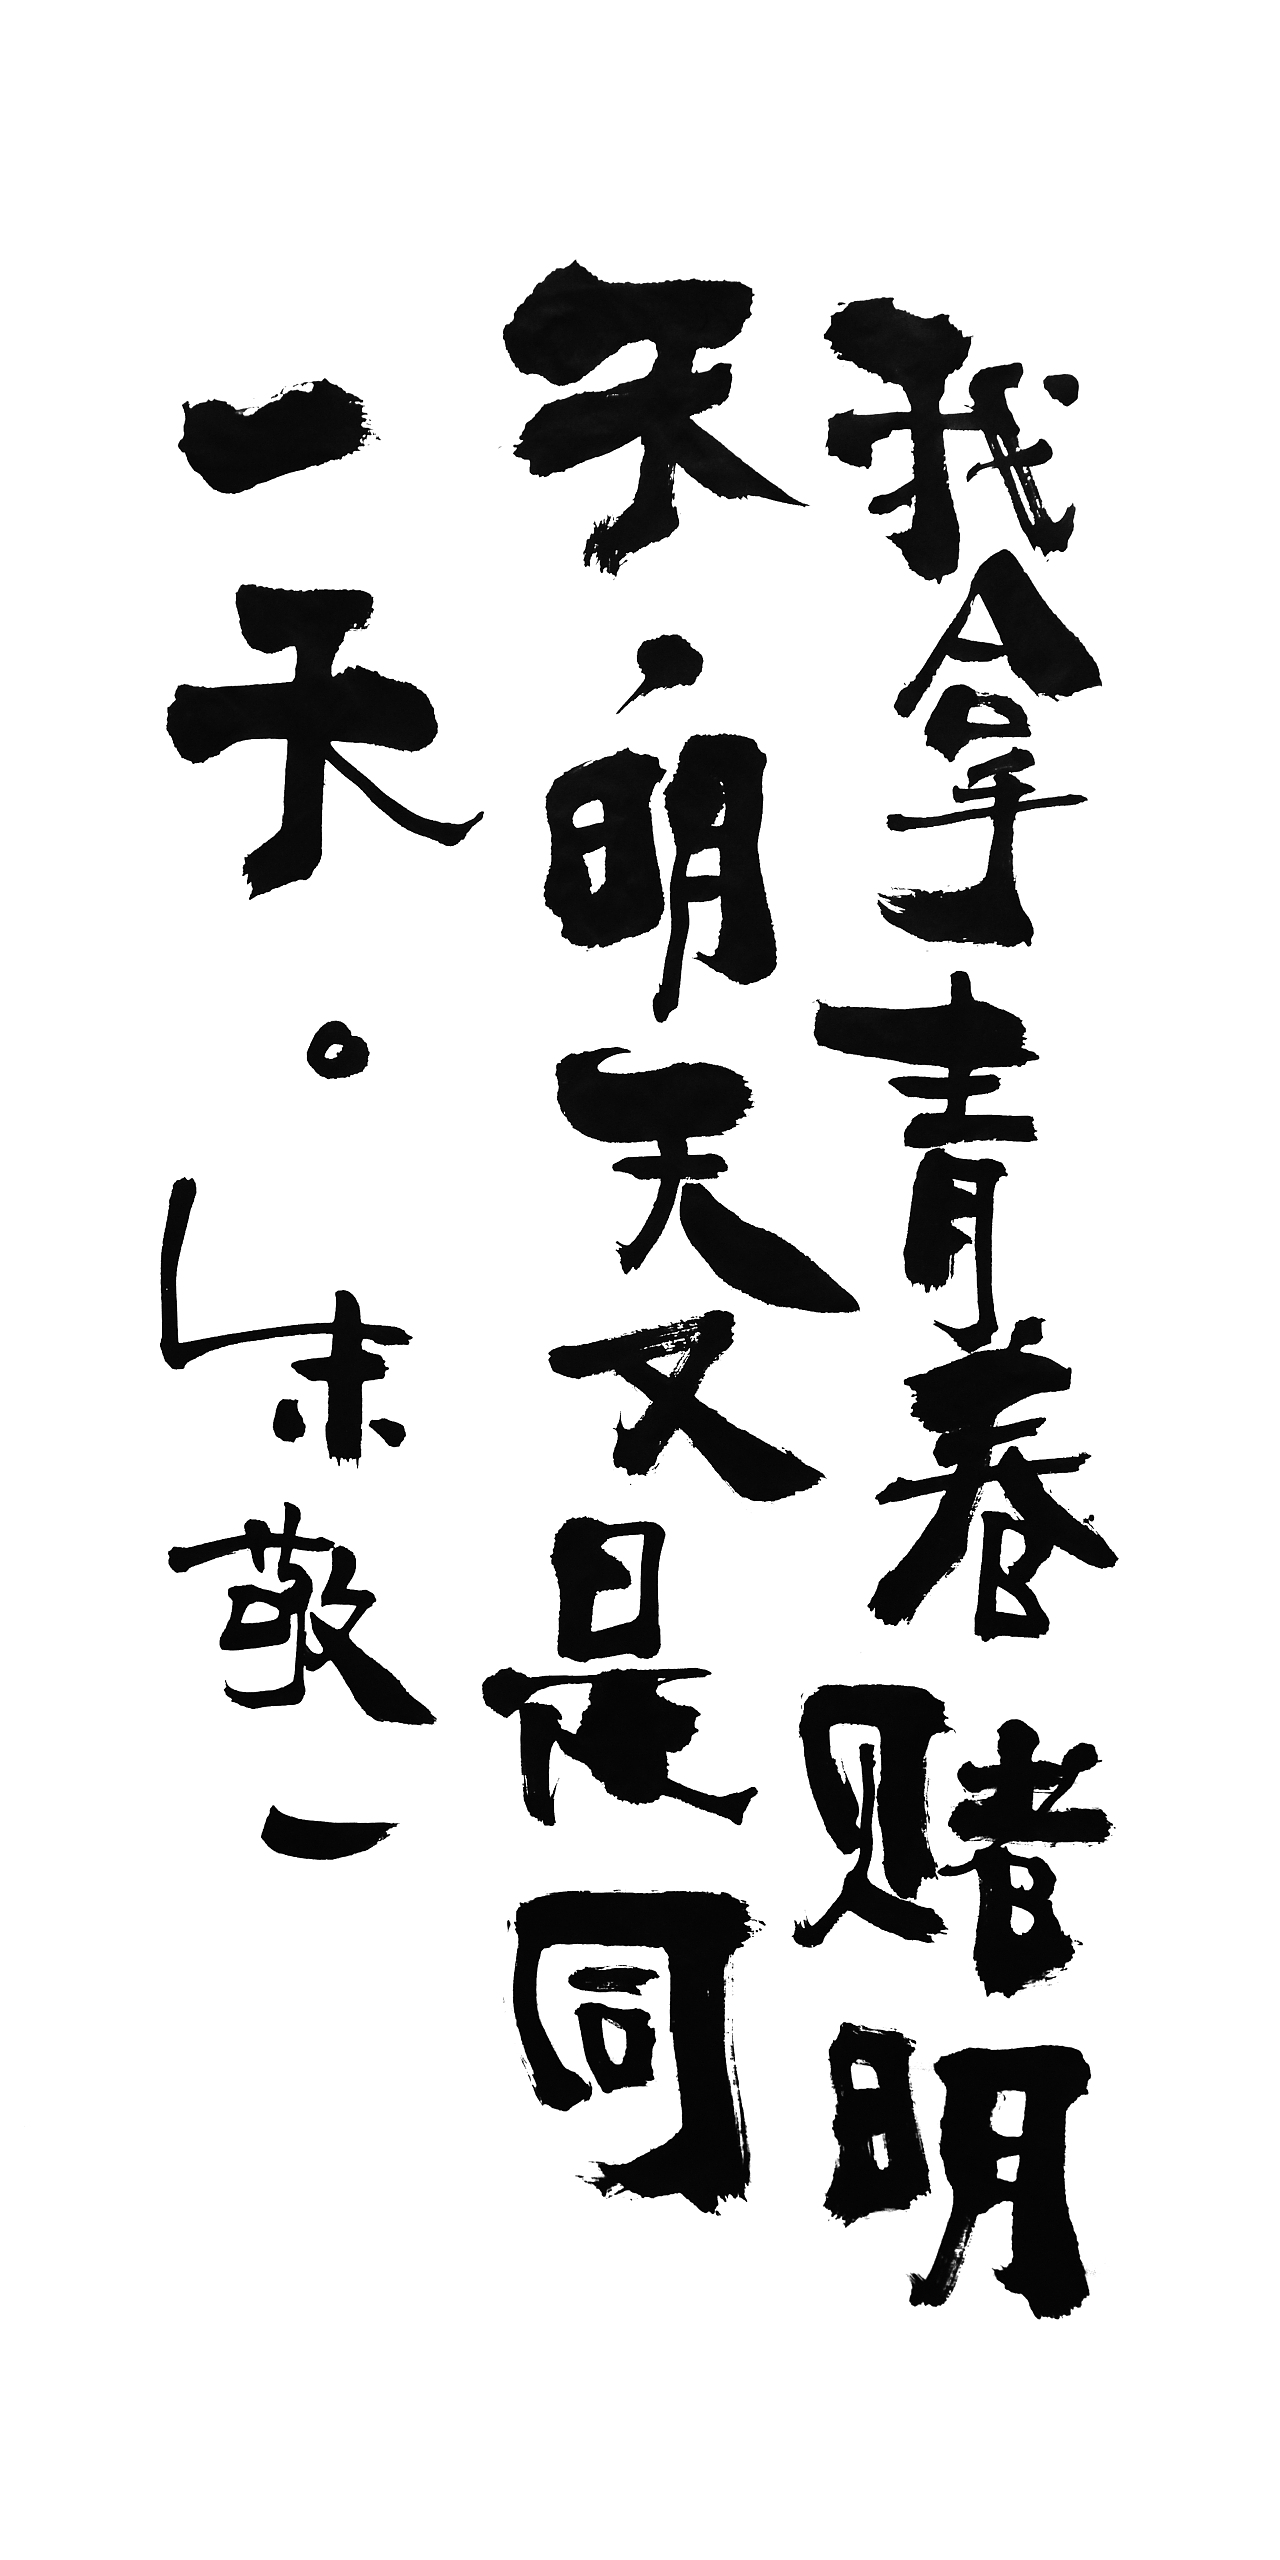 我拿青春赌明
天，明天又是同
一天。朱敬一